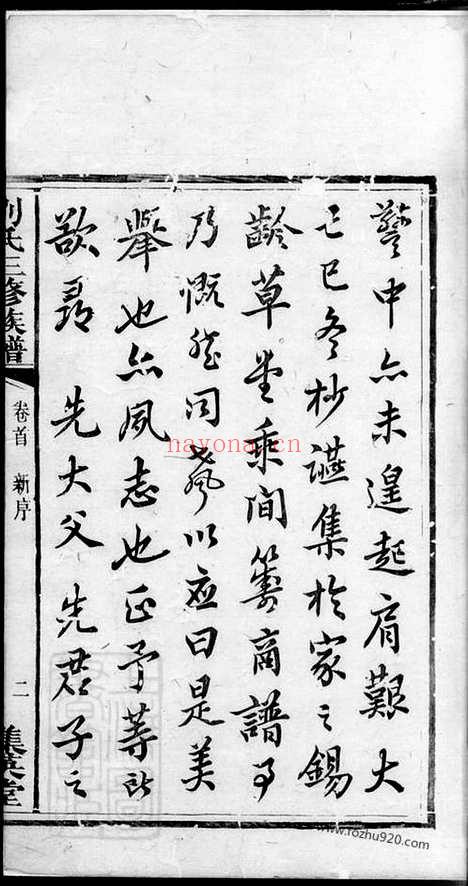 中亦未遑起肩艱大
己巳冬杪讌集於家之錫
齡草堂乘間籌商譜事
乃慨然同聲以應曰是美
舉也亦夙志也正予等所
欲 先大父 先君子之
劉氏三修族譜
卷首 新序
二
集英堂
nayona.cn
www.fozhu920.com